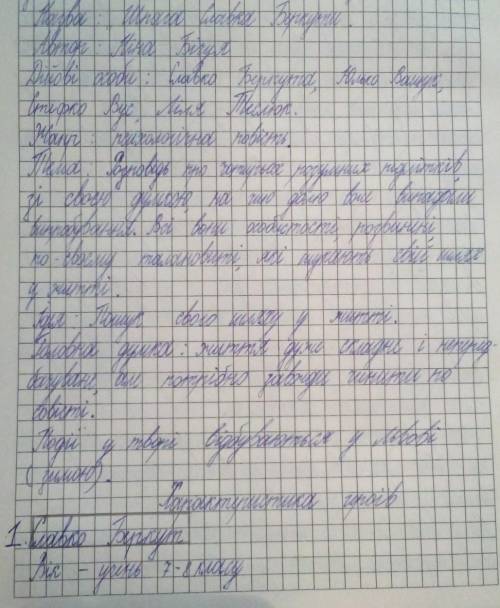 Назва: „Шпага Славка Беркути".
Автор: Ніна Бічуя
Дійові особи: Славко Беркута, Юлько Ващук,
Стефко Вус, Лілі Теслюк.
Жанр: психологічна повість.
Тема: Розповідь про чотирьох розумних підлітків
зі своєю думкою, на чию долю вже випадали
випробування. Всі вони особистості, розвинені
по-своєму талановиті, які шукають свій шлях
у житті.
Ідея: Пошук свого шляху у житті.
Головна думка: життя дуже складне і неперед-
бачуване але потрібно завжди чинити по
совісті.
Події у творі відбуваються у Львові
( ).
Характеристика героїв
1. Славко Беркут
Вік – учень 7-8 класу